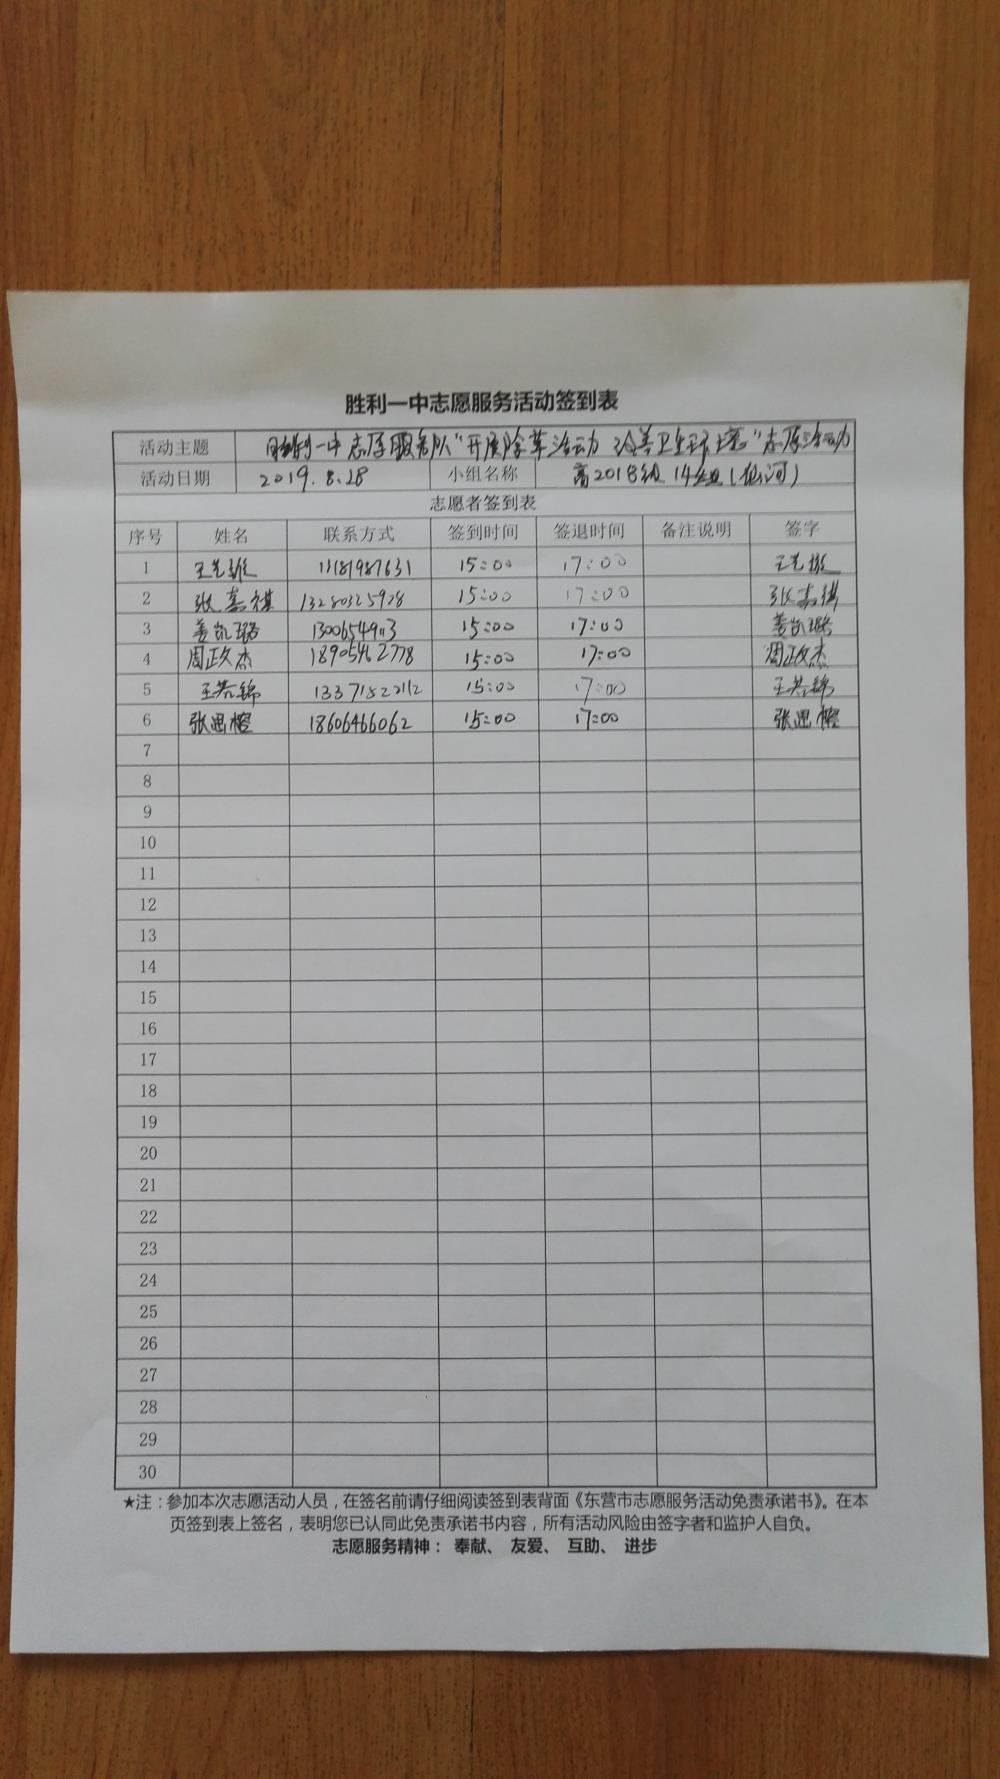 胜利一中志愿服务活动签到表
活动主题 胜利一中志愿服务队“开展除草活动 改善卫生环境”志愿活动
活动日期 2019.8.28 小组名称 高2018级14组(仙河)
志愿者签到表
序号 姓名 联系方式 签到时间 签退时间 备注说明 签字
1 15:00 17:00
2 张嘉祺 13280325928 15:00 17:00 张嘉祺
3 姜凯璐 15:00 17:00 姜凯璐
4 周政杰 18905462778 15:00 17:00 周政杰
5 王若锦 15:00 17:00 王若锦
6 张思榕 18606466062 15:00 17:00 张思榕
7
8
9
10
11
12
13
14
15
16
17
18
19
20
21
22
23
24
25
26
27
28
29
30
★注：参加本次志愿活动人员，在签名前请仔细阅读签到表背面《东营市志愿服务活动免责承诺书》。在本
页签到表上签名，表明您已认同此免责承诺书内容，所有活动风险由签字者和监护人自负。
志愿服务精神： 奉献、 友爱、 互助、 进步